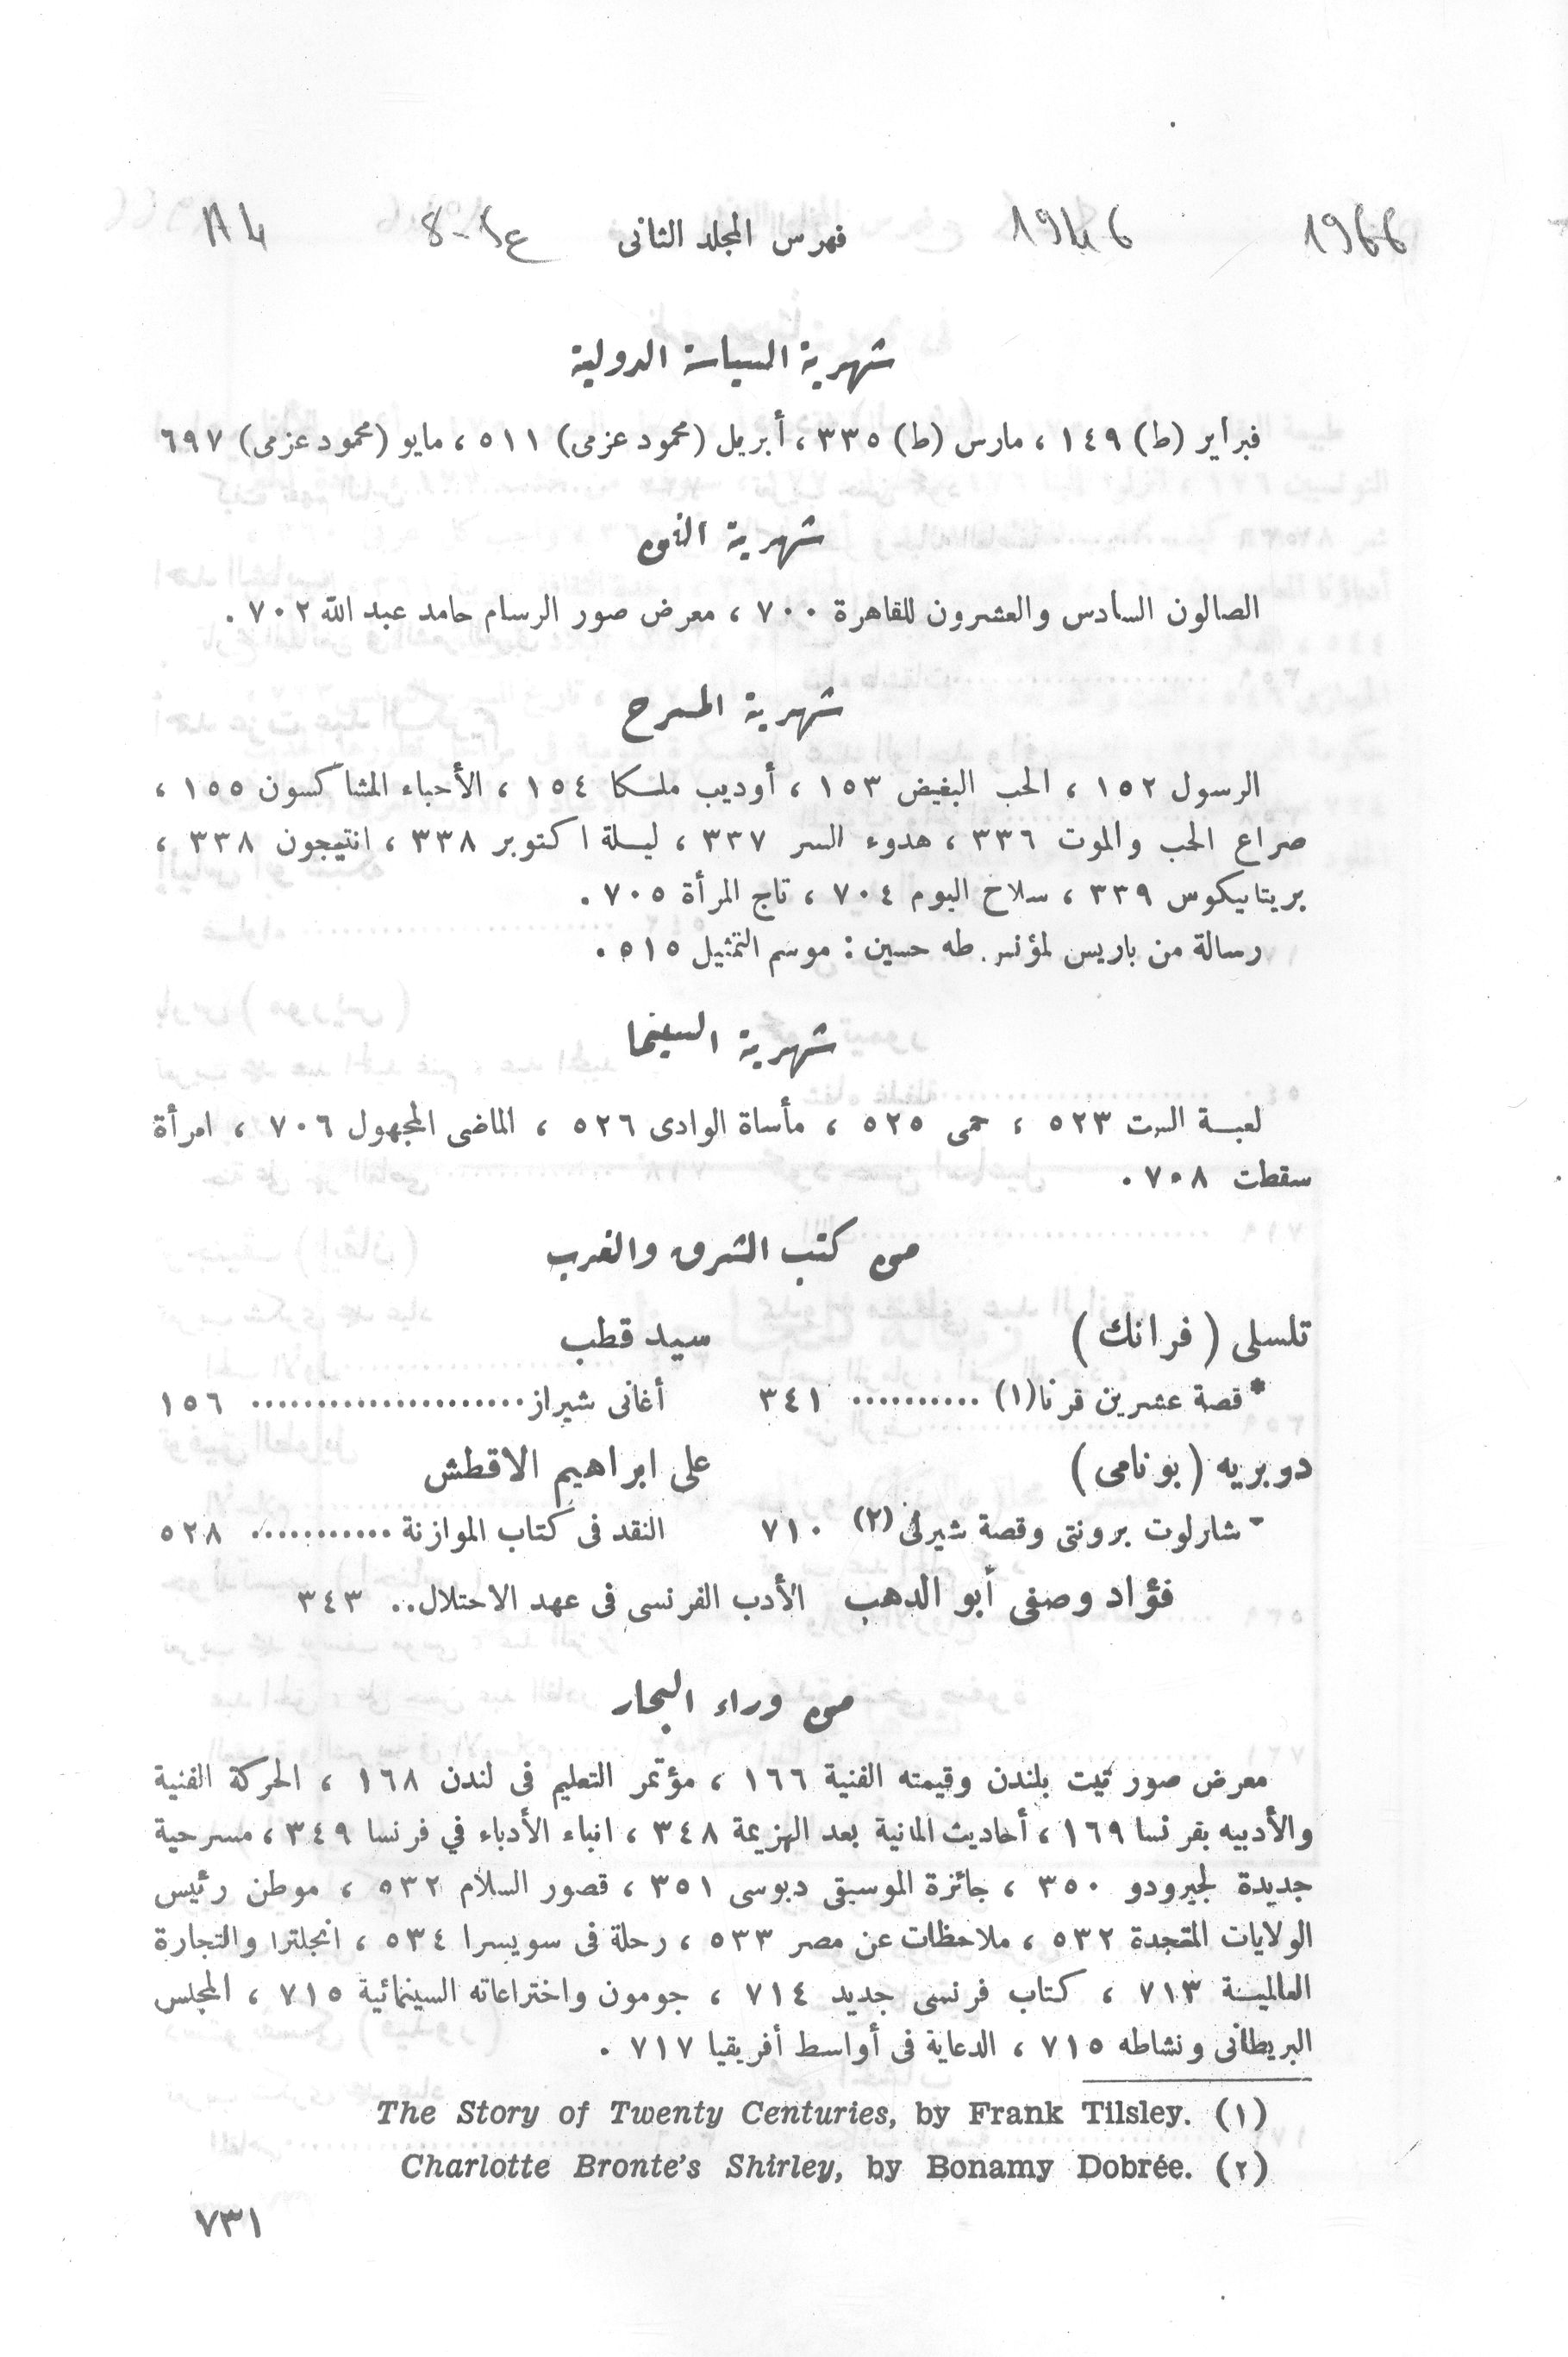 1966 1946 فهرس المجلد الثانى
شهرية السياسة الدولية
فبراير (ط) ١٤٩ ، مارس (ط) ٣٣٥ ، أبريل (محمود عزمى) ٥١١ ، مايو (محمود عزمى) ٦٩٧
شهرية الفن
الصالون السادس والعشرون للقاهرة ٧٠٠ ، معرض صور الرسام حامد عبد الله ٧٠٢ .
شهرية المسرح
الرسول ١٥٢ ، الحب البغيض ١٥٣ ، أوديب ملكا ١٥٤ ، الأحباء المشاكسون ١٥٥ ،
صراع الحب والموت ٣٣٦ ، هدوء السر ٣٣٧ ، ليلة اكتوبر ٣٣٨ ، انتيجون ٣٣٨ ،
بريتانيكوس ٣٣٩ ، سلاح اليوم ٧٠٤ ، تاج المرأة ٧٠٥ .
رسالة من باريس لمؤنس طه حسين : موسم التمثيل ٥١٥ .
شهرية السينما
لعبة الست ٥٢٣ ، حمى ٥٢٥ ، مأساة الوادى ٥٢٦ ، الماضى المجهول ٧٠٦ ، امرأة
سقطت ٧٠٨ .
من كتب الشرق والغرب
تلسلى (فرانك)
* قصة عشرين قرنا (١) ........... ٣٤١
دوبريه (بونامى)
- شارلوت برونتى وقصة شيرلى (٢) ٧١٠
سيد قطب
أغانى شيراز ..................... ١٥٦
على ابراهيم الاقطش
النقد فى كتاب الموازنة ........... ٥٢٨
فؤاد وصفى أبو الدهب الأدب الفرنسى فى عهد الاحتلال.. ٣٤٣
من وراء البحار
معرض صور تيت بلندن وقيمته الفنية ١٦٦ ، مؤتمر التعليم فى لندن ١٦٨ ، الحركة الفنية
والأدبيه بفرنسا ١٦٩ ، أحاديث المانية بعد الهزيمة ٣٤٨ ، انباء الأدباء في فرنسا ٣٤٩ ، مسرحية
جديدة لجيرودو ٣٥٠ ، جائزة الموسيقى دبوسى ٣٥١ ، قصور السلام ٥٣٢ ، موطن رئيس
الولايات المتحدة ٥٣٢ ، ملاحظات عن مصر ٥٣٣ ، رحلة فى سويسرا ٥٣٤ ، انجلترا والتجارة
العالمية ٧١٣ ، كتاب فرنسى جديد ٧١٤ ، جومون واختراعاته السينمائية ٧١٥ ، المجلس
البريطانى ونشاطه ٧١٥ ، الدعاية فى أواسط أفريقيا ٧١٧ .
(١) The Story of Twenty Centuries, by Frank Tilsley.
(٢) Charlotte Bronte's Shirley, by Bonamy Dobrée.
٧٣١